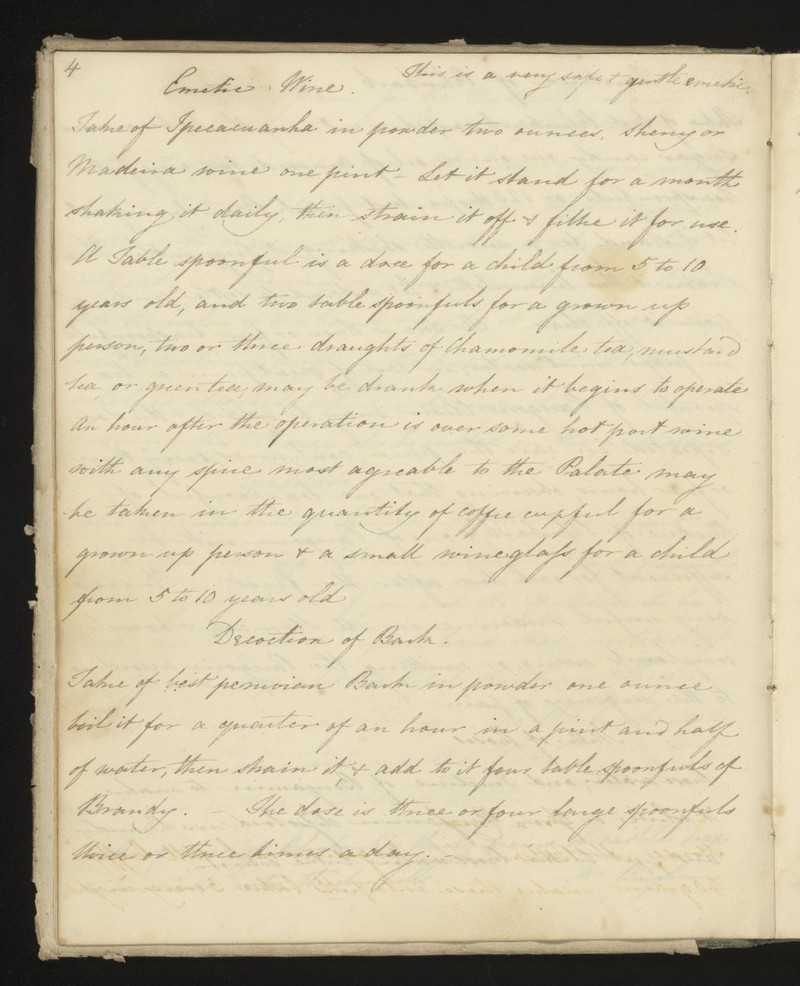 4
Emetic Wine. This is a very safe & gentle emetic.
Take of Ipecacuanha in powder two ounces, sherry or
Madeira wine one pint - Let it stand for a month
shaking it daily, then strain it off & filtre it for use.
A Table spoonful is a dose for a child from 5 to 10
years old, and two table spoonfuls for a grown up
person, two or three draughts of Chamomile tea, mustard
tea, or green tea, may be drank when it begins to operate
An hour after the operation is over some hot port wine
with any spice most agreable to the Palate may
be taken in the quantity of coffee cupful for a
grown up person & a small wineglass for a child
from 5 to 10 years old
Decoction of Bark.
Take of best peruvian Bark in powder one ounce
boil it for a quarter of an hour in a pint and half
of water, then strain it, & add to it four table spoonfuls of
Brandy. - The dose is three or four large spoonfuls
twice or three times a day.